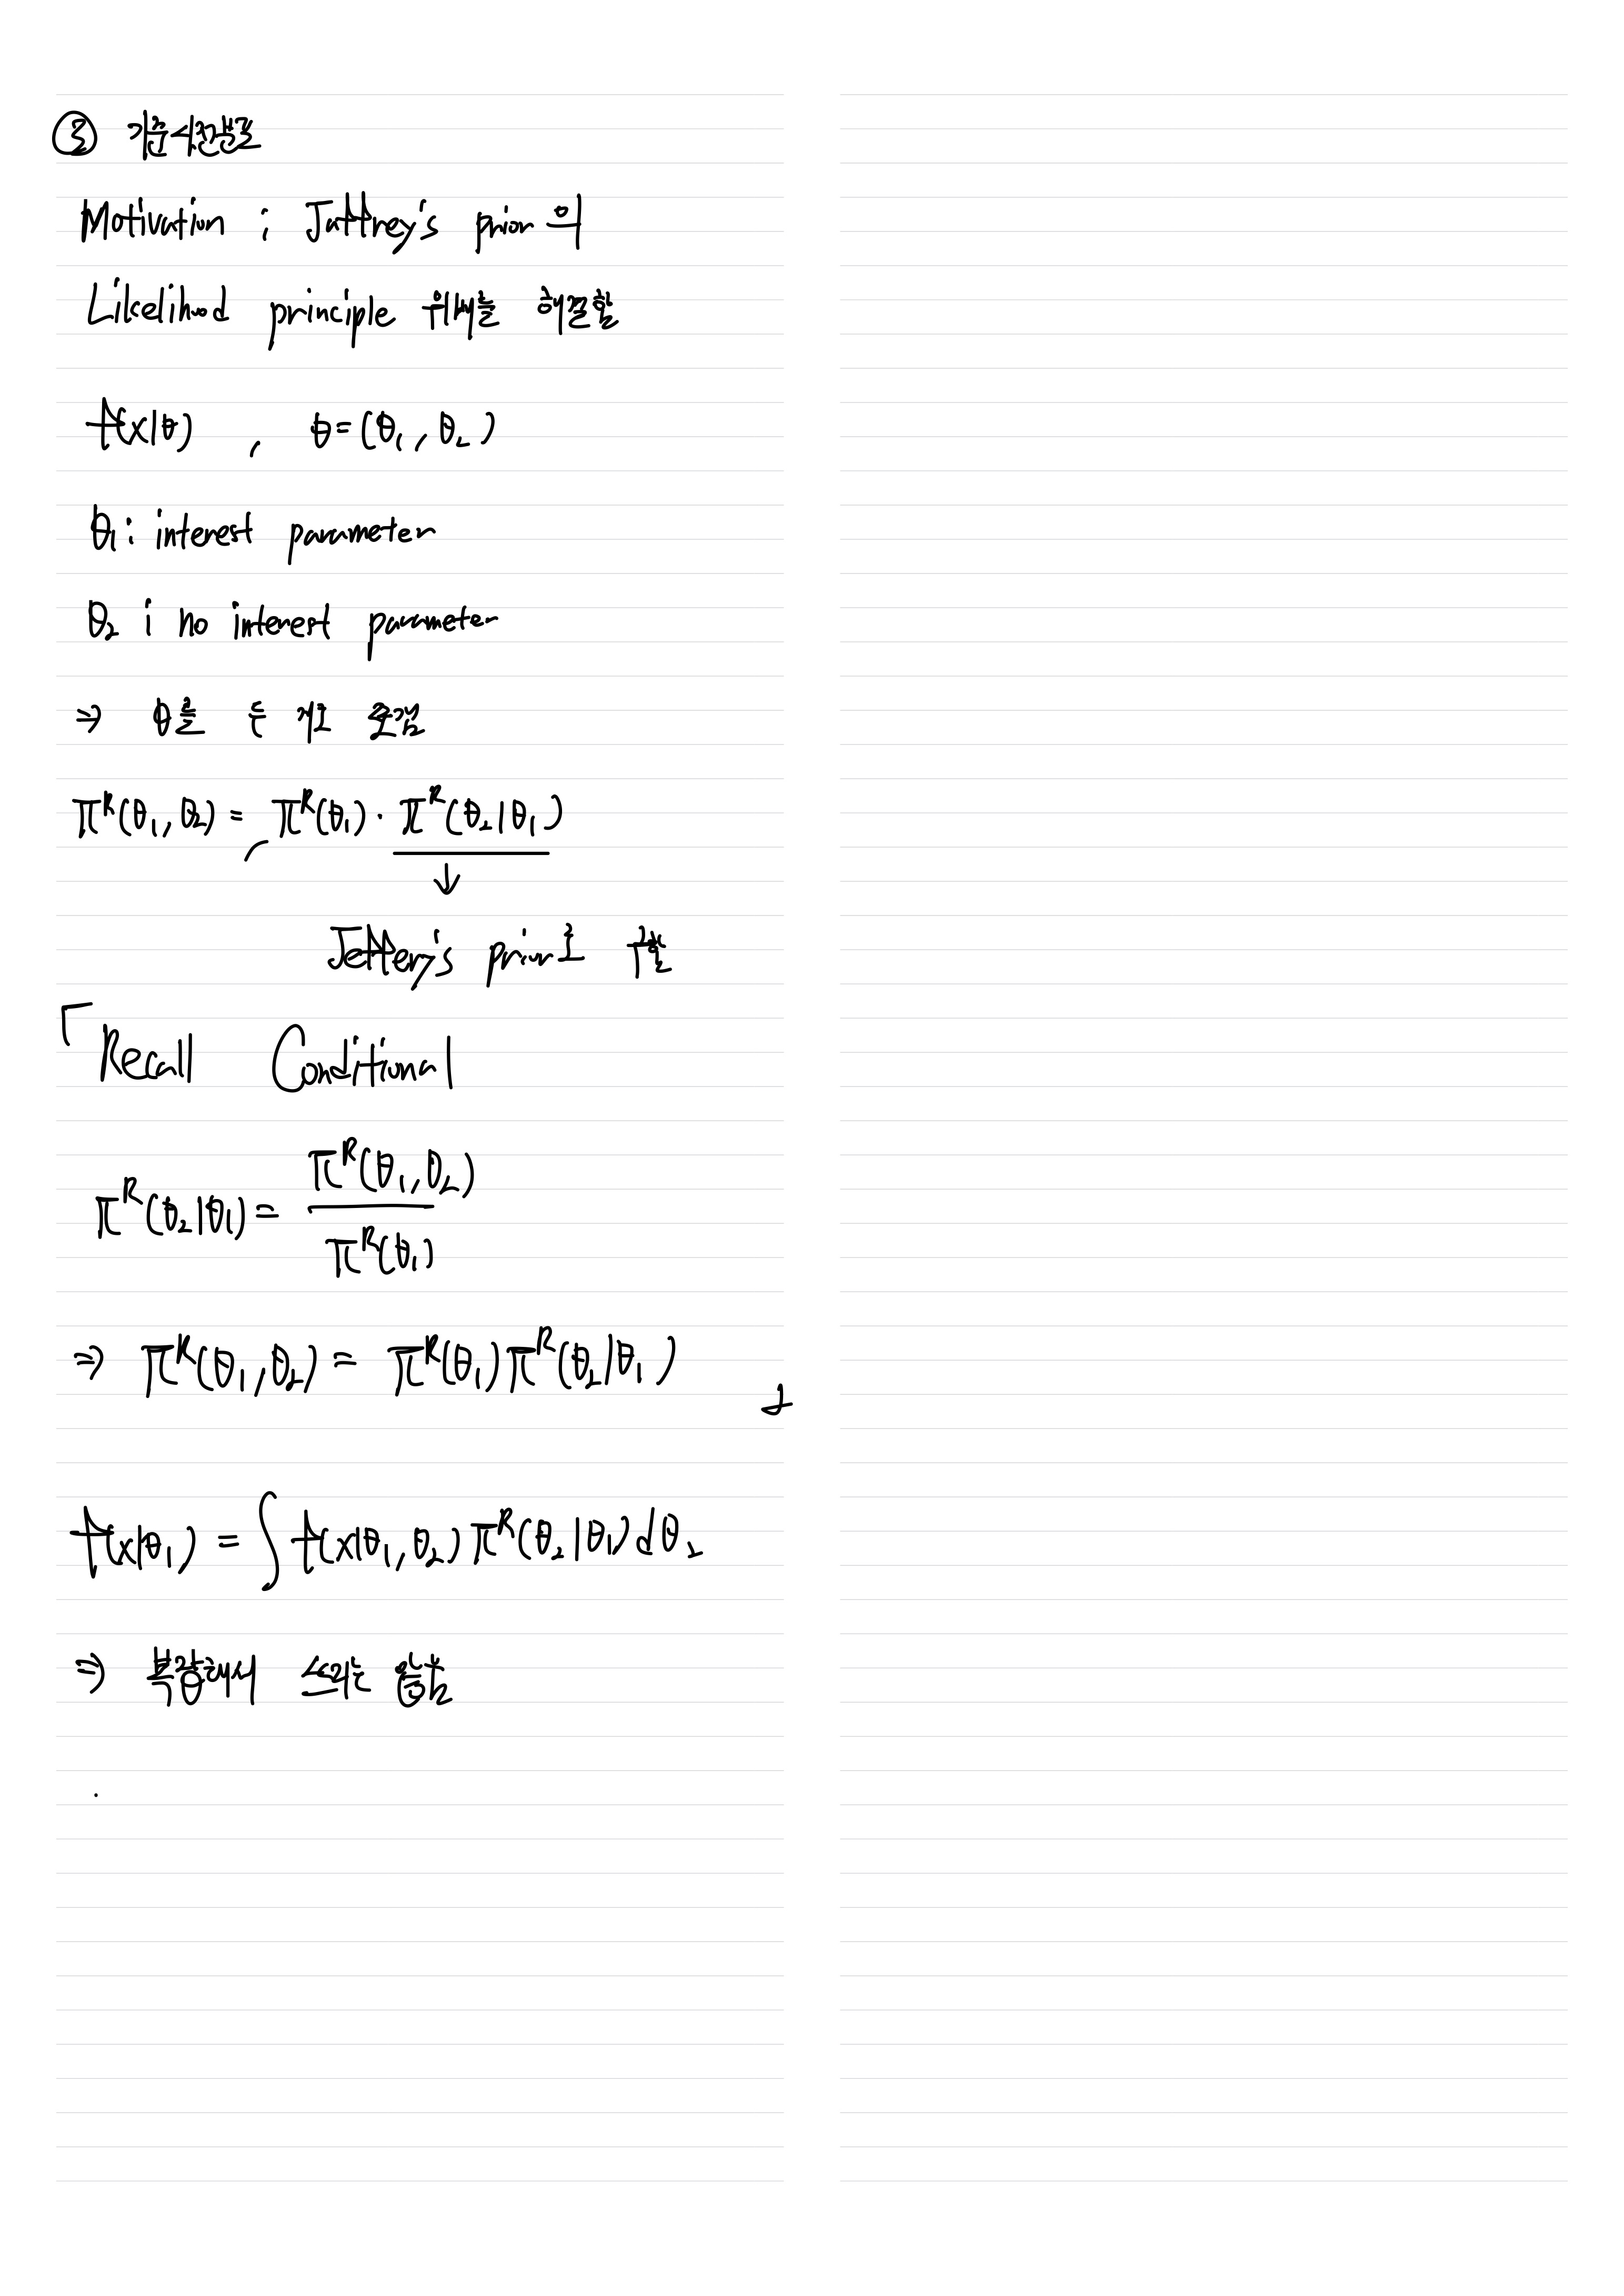 ③ 기준사전분포
Motivation : Jeffrey's prior의
Likelihood principle 위배를 해결함
f(x|θ) , θ=(θ₁, θ₂)
θ₁: interest parameter
θ₂ : no interest parameter
⇒ θ를 두 개로 쪼갬
π^R(θ₁, θ₂) = π^R(θ₁) · π^R(θ₂|θ₁)
↓
Jeffery's prior로 구함
「Recall Conditional
π^R(θ₂|θ₁) = π^R(θ₁, θ₂) / π^R(θ₁)
⇒ π^R(θ₁, θ₂) = π^R(θ₁)π^R(θ₂|θ₁) 」
f(x|θ₁) = ∫ f(x|θ₁, θ₂) π^R(θ₂|θ₁) dθ₂
⇒